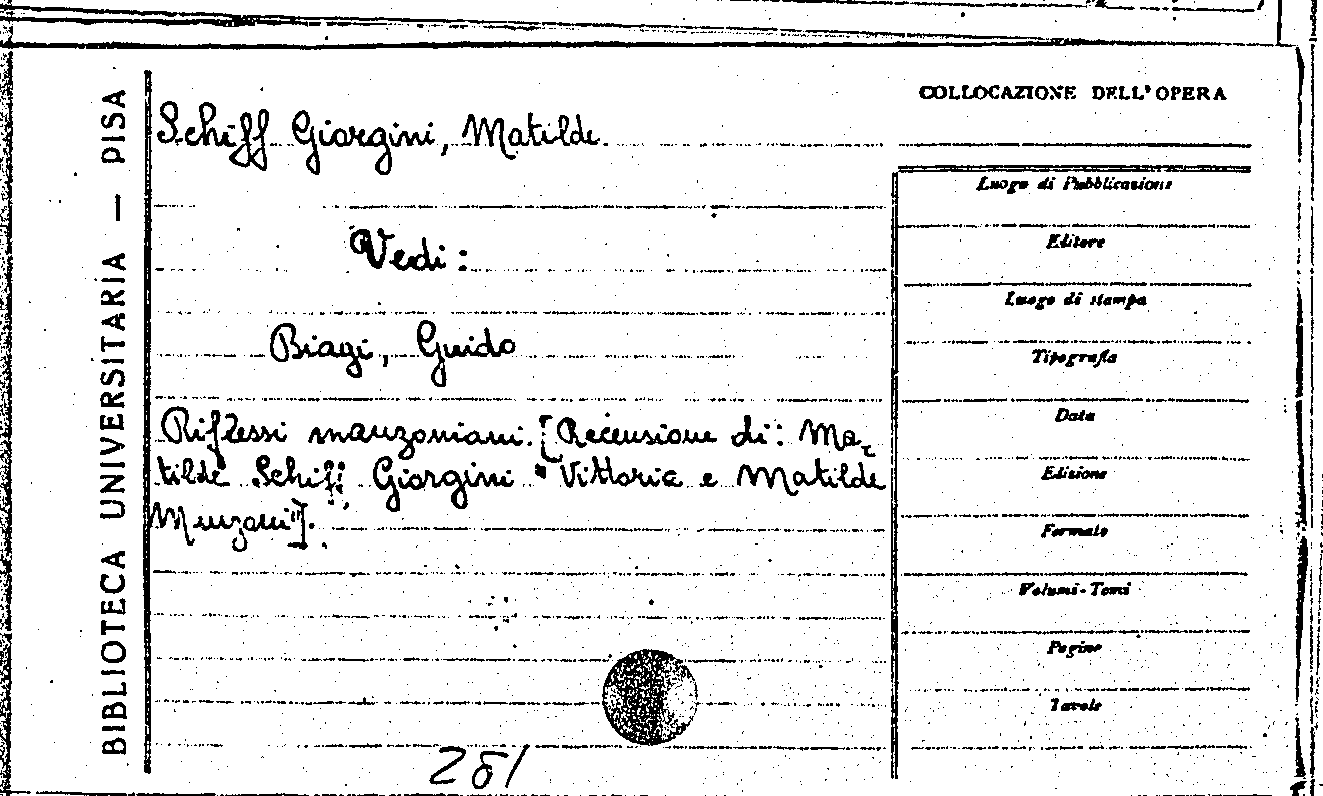 BIBLIOTECA UNIVERSITARIA — PISA
Schiff Giorgini, Matilde.
Vedi:
Biagi, Guido
Riflessi manzoniani. [Recensione di: Ma-
tilde Schiff Giorgini "Vittoria e Matilde
Manzoni"].
COLLOCAZIONE DELL'OPERA
Luogo di Pubblicazione
Editore
Luogo di stampa
Tipografia
Data
Edizione
Formato
Volumi-Tomi
Pagine
Tavole